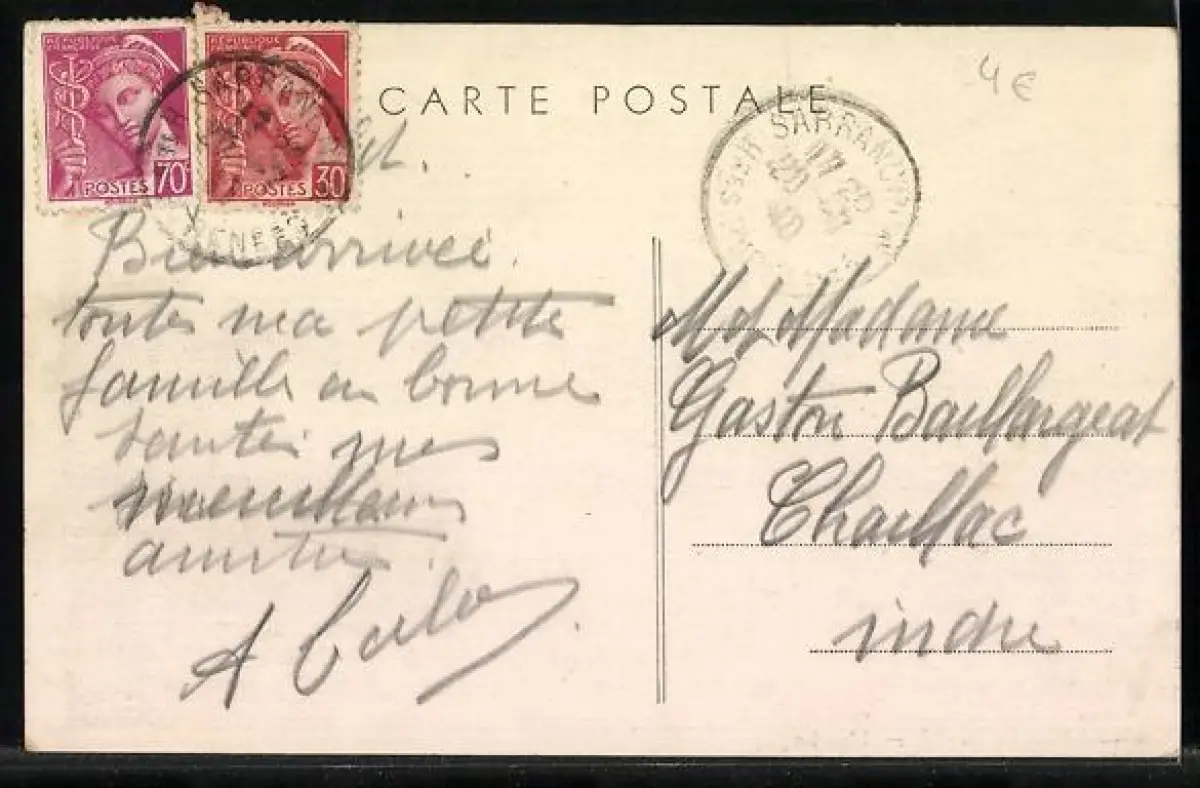 RÉPUBLIQUE FRANÇAISE
POSTES 70c
RÉPUBLIQUE FRANÇAISE
POSTES 30
CARTE POSTALE
4€
SARRANCOLIN
Bien arrivée.
toutes ma petite
famille en bonne
santée mes
meilleures
amitiés.
M et Madame
Gaston Baillargeat
Chaillac
indre